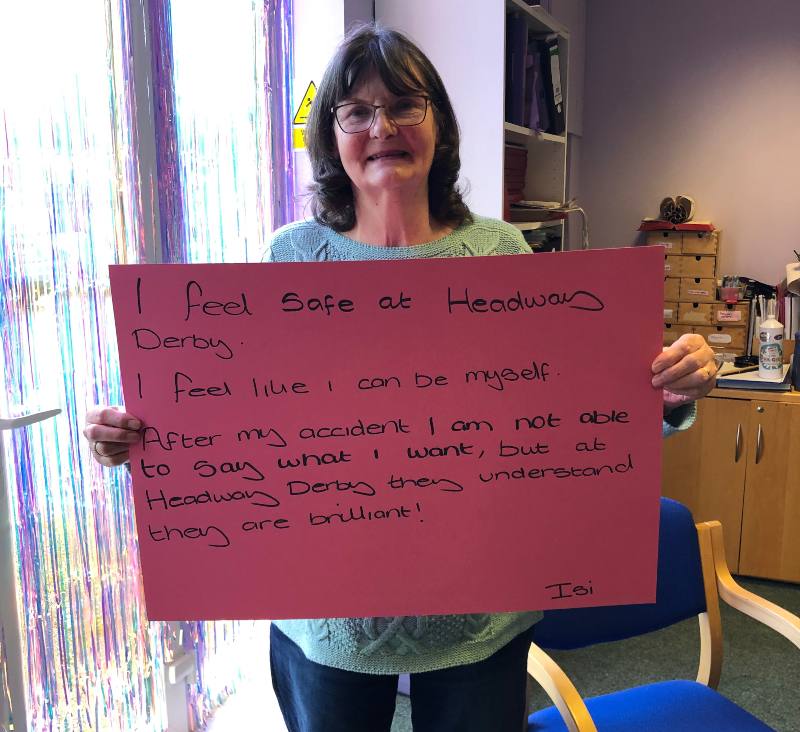 I feel safe at Headway
Derby.
I feel like i can be myself.
After my accident I am not able
to say what i want, but at
Headway Derby they understand
they are brilliant!
Isi